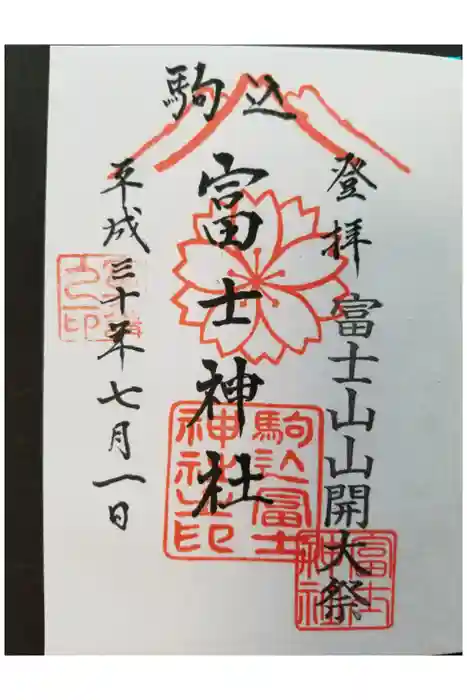 登拝 富士山山開大祭
駒込
富士神社
平成三十年七月一日
駒込富士
神社之印
富士
神社